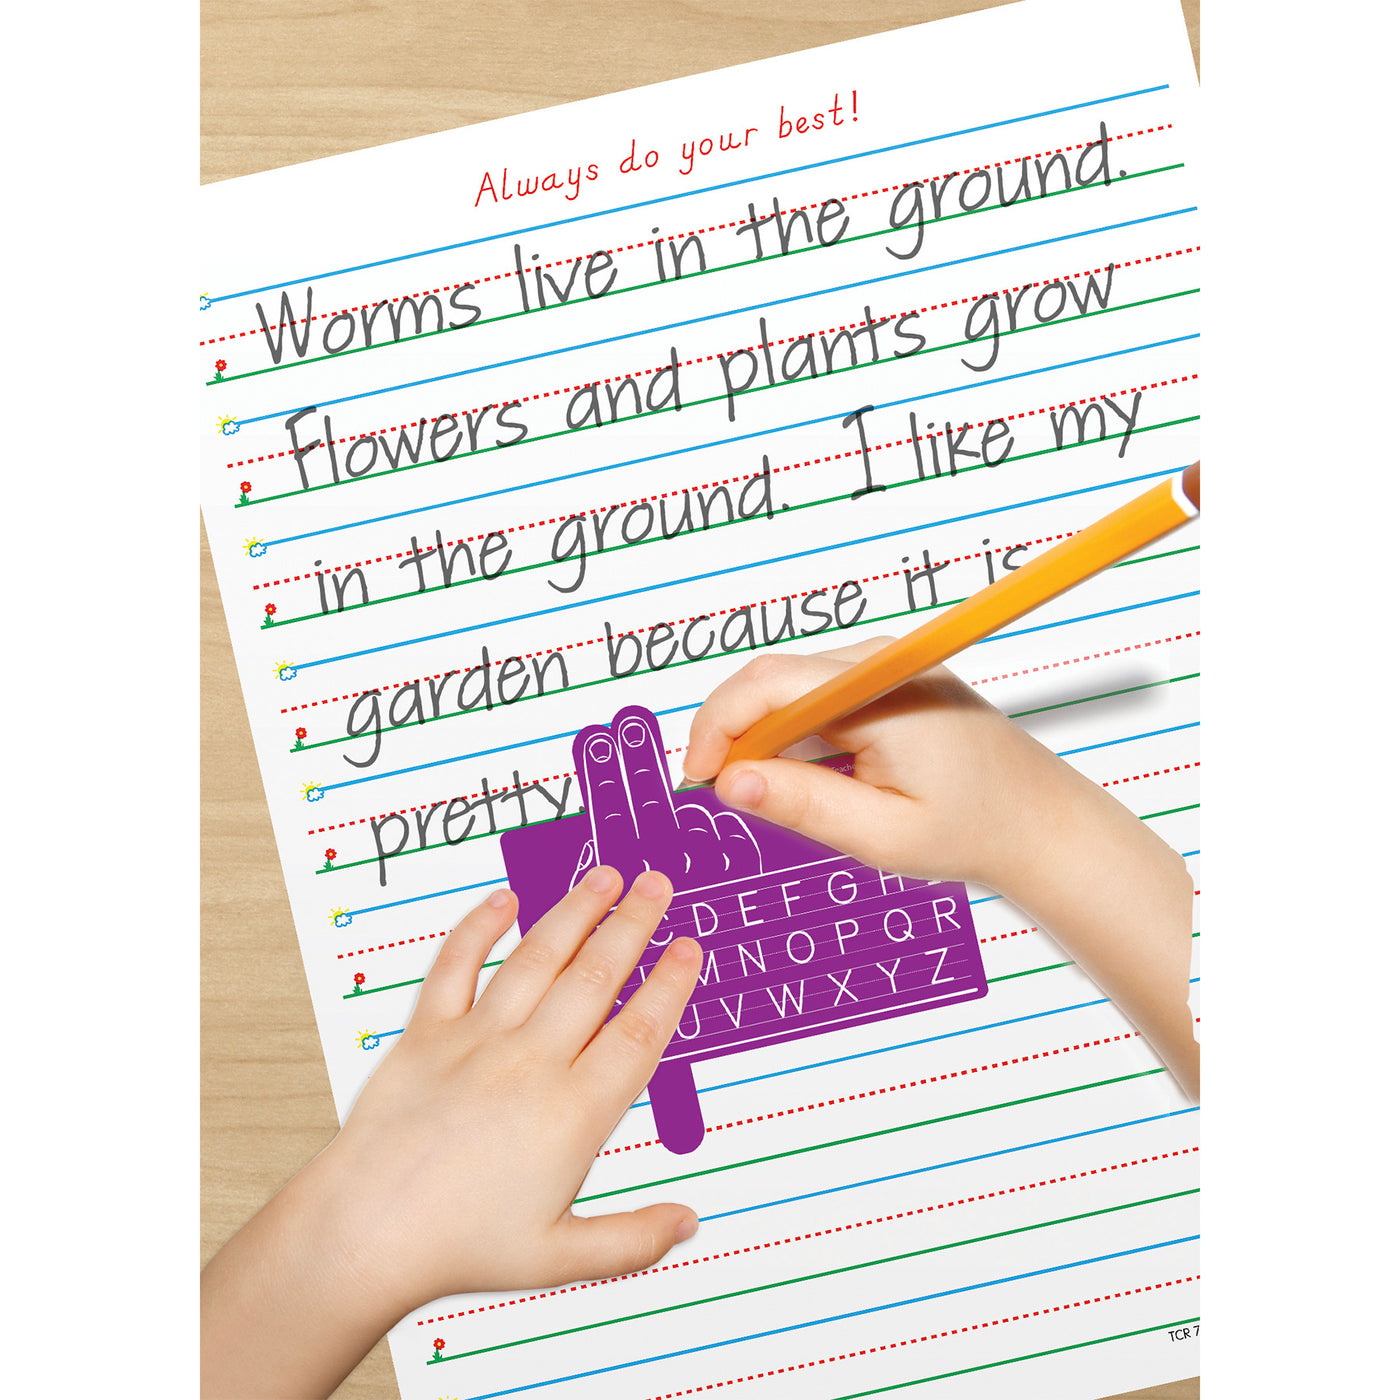 Always do your best!
Worms live in the ground.
Flowers and plants grow
in the ground. I like my
garden because it is
pretty.
C D E F G H
M N O P Q R
U V W X Y Z
TCR 7